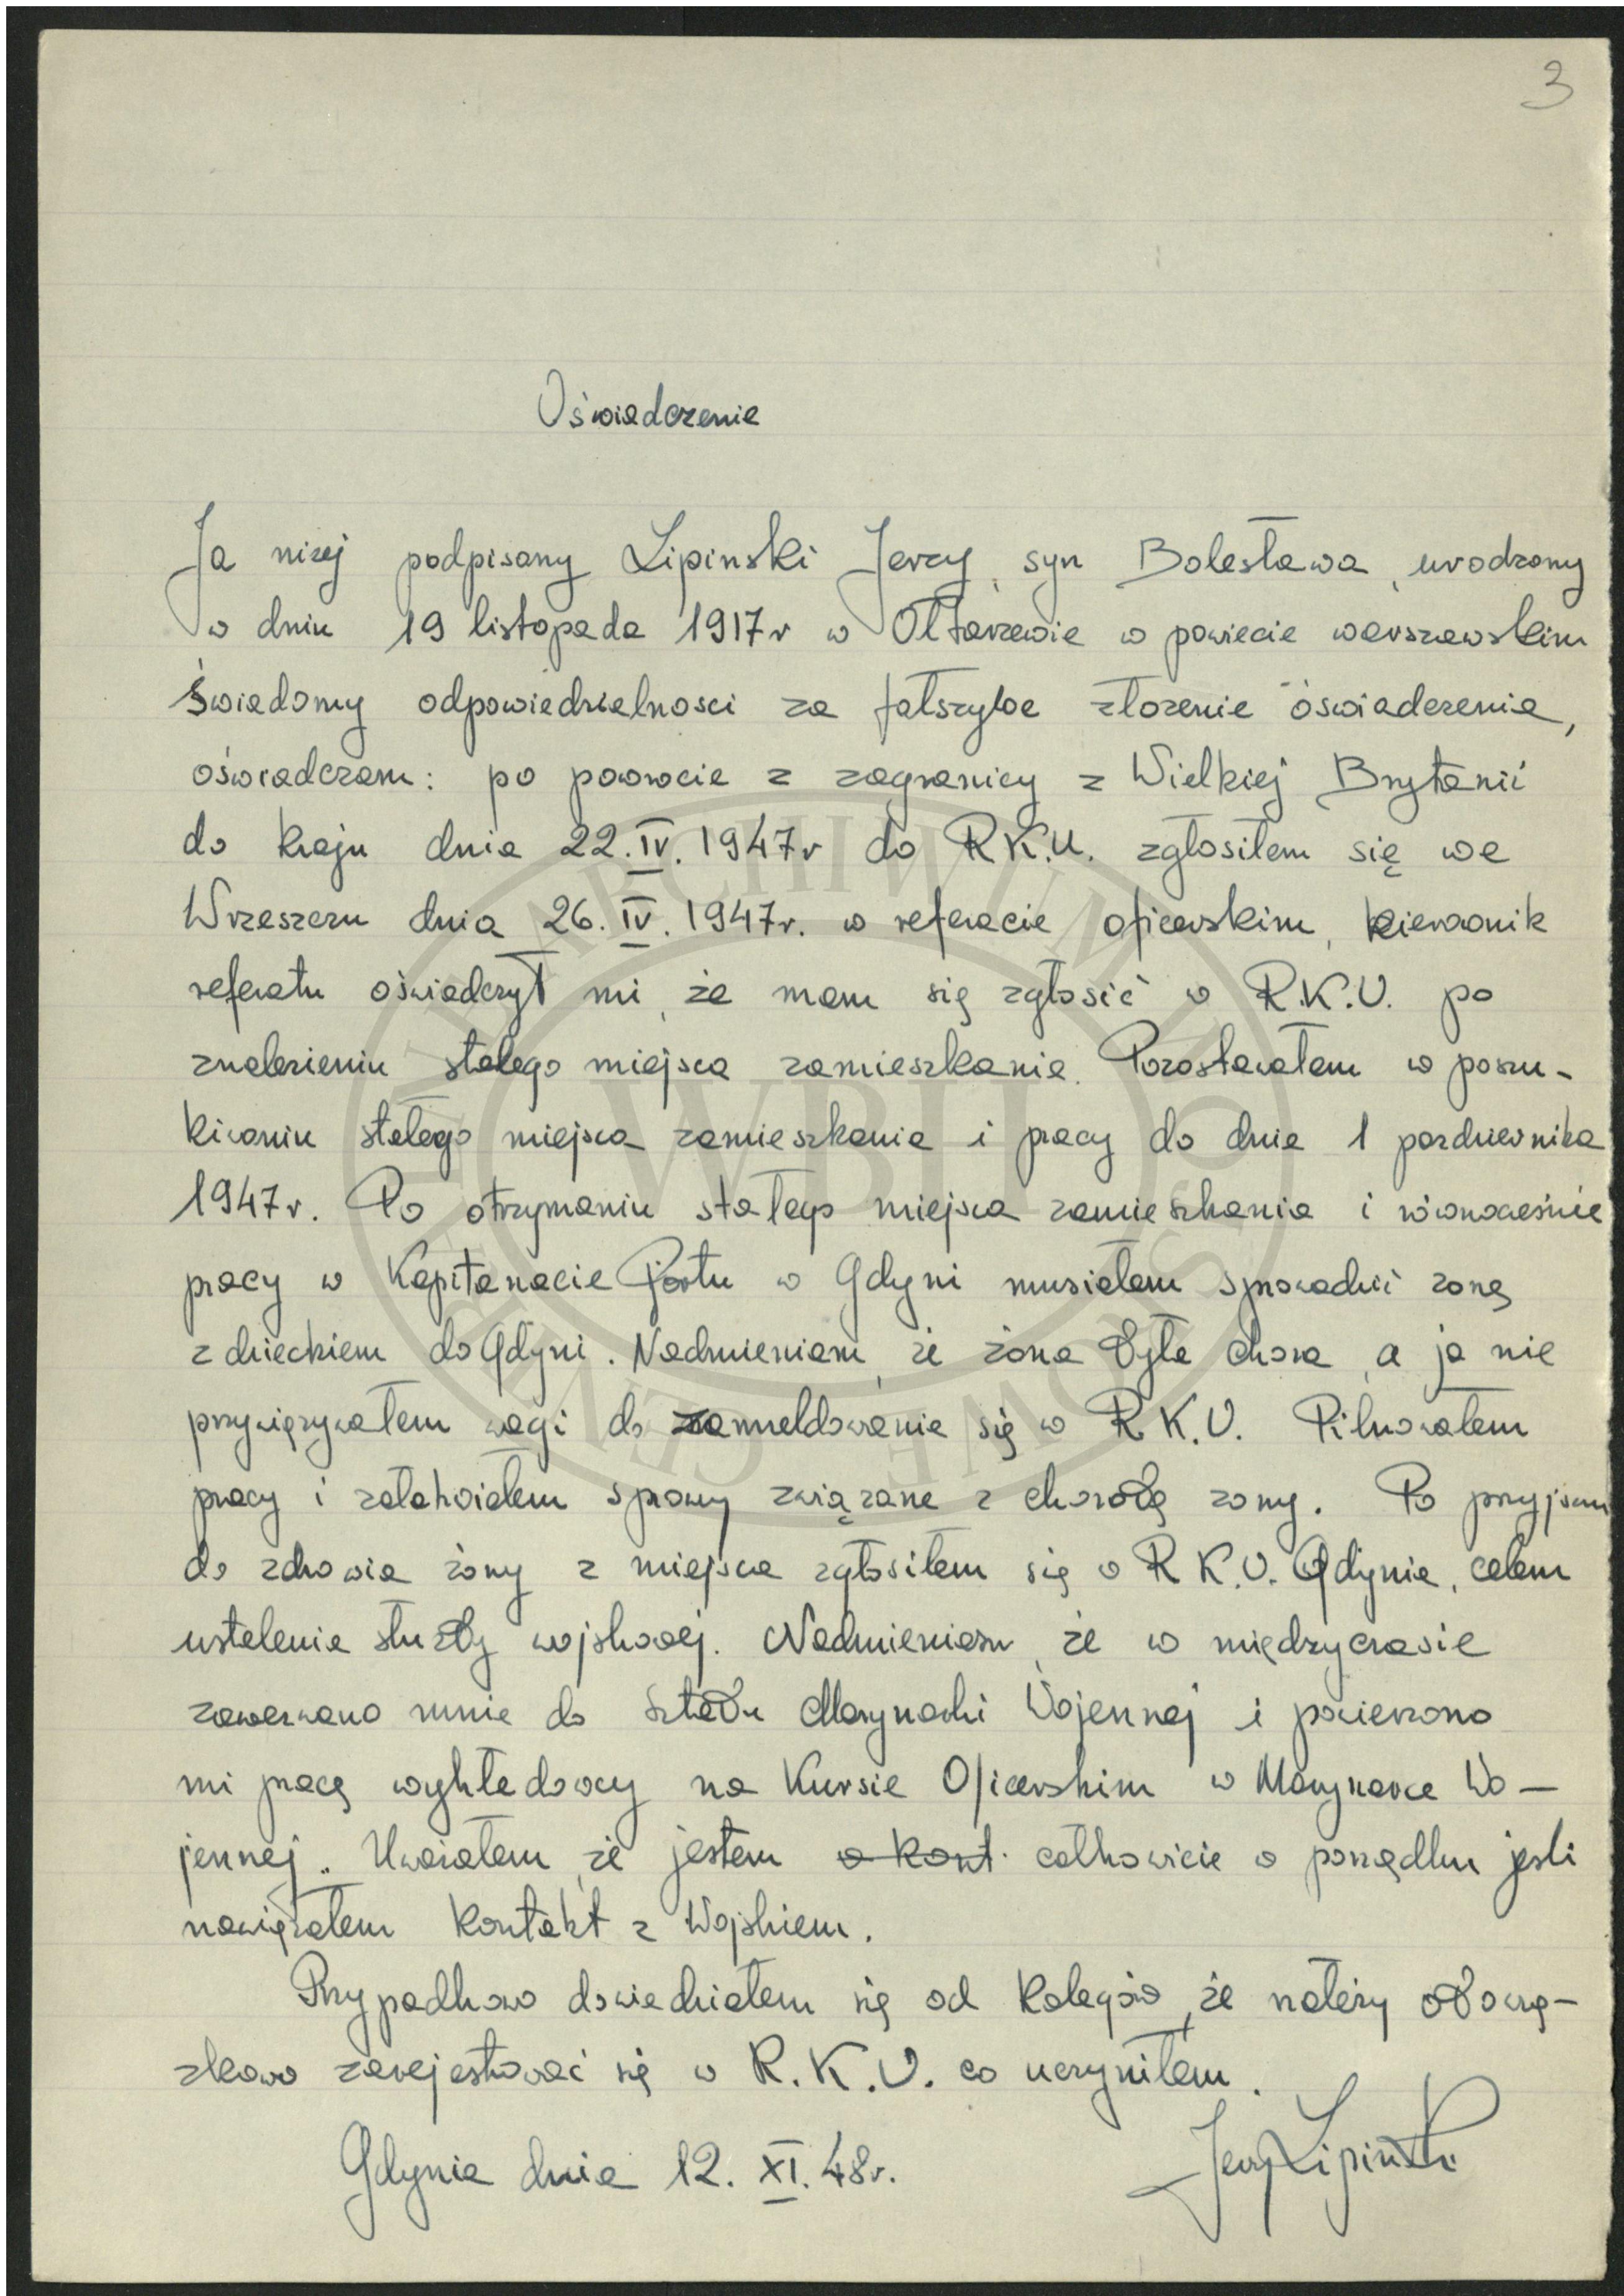 3
Oświadczenie
Ja niżej podpisany Lipinski Jerzy, syn Bolesława, urodzony
w dniu 19 listopada 1917r w Ołtarzewie w powiecie warszawskim
świadomy odpowiedzialnosci za fałszywe złozenie oświadczenia,
oświadczam: po powrocie z zagranicy z Wielkiej Brytanii
do kraju dnia 22.IV.1947r do R.K.U. zgłosiłem się we
Wrzeszczu dnia 26.IV.1947r. w referacie oficerskim, kierownik
referatu oświadczył mi, że mam się zgłosić w R.K.U. po
znalezieniu stałego miejsca zamieszkania. Pozostawałem w poszu-
kiwaniu stałego miejsca zamieszkania i pracy do dnia 1 pazdziernika
1947r. Po otrzymaniu stałego miejsca zamieszkania i równocześnie
pracy w Kapitanacie Portu w Gdyni musiałem sprowadzić zonę
z dzieckiem do Gdyni. Nadmieniam, że żona była chora, a ja nie
przywiązywałem wagi do zameldowania się w R.K.U. Pilnowałem
pracy i załatwiałem sprawy związane z chorobą zony. Po przyjsciu
do zdrowia żony z miejsca zgłosiłem się w R.K.U. Gdynia, celem
ustalenia służby wojskowej. Nadmieniam, że w międzyczasie
zawezwano mnie do Sztabu Marynarki Wojennej i powierzono
mi pracę wykładowcy na Kursie Oficerskim w Marynarce Wo-
jennej. Uważałem, że jestem w kont. całkowicie w porządku jesli
nawiązałem kontakt z Wojskiem.
Przypadkowo dowiedziałem się od kolegów, że należy obowią-
zkowo zarejestrować się w R.K.U. co uczyniłem.
Gdynia dnia 12.XI.48r. Jerzy Lipiński
ARCHIWUM
WBH